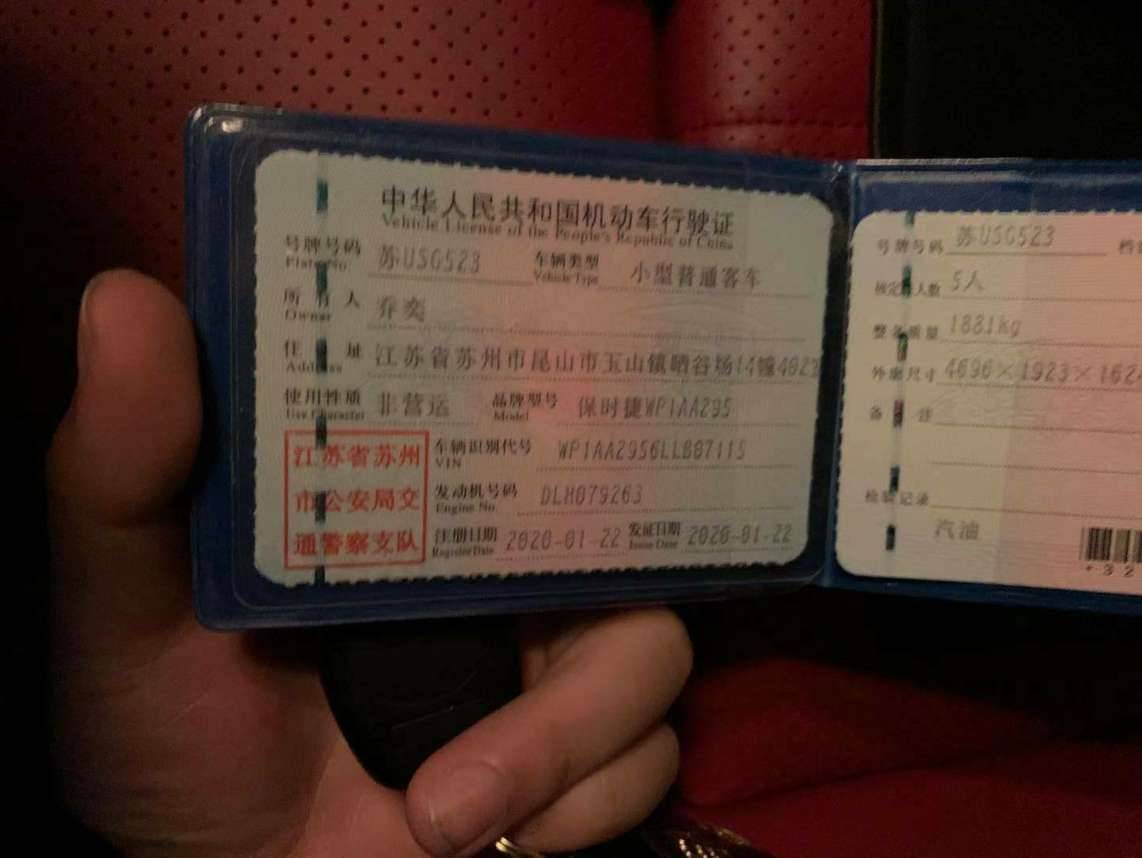 中华人民共和国机动车行驶证
Vehicle License of the People's Republic of China
号牌号码 苏USG523 车辆类型 小型普通客车
Plate No. Vehicle Type
所有人 乔奕
Owner
住址 江苏省苏州市昆山市玉山镇晒谷场14幢402
Address
使用性质 非营运 品牌型号 保时捷WP1AA295
Use Character Model
江苏省苏州
市公安局交
通警察支队
车辆识别代号 WP1AA2956LLB07115
VIN
发动机号码 DLH079263
Engine No.
注册日期 2020-01-22 发证日期 2020-01-22
Register Date Issue Date
号牌号码 苏USG523 档
核定载人数 5人
整备质量 1881kg
外廓尺寸 4696×1923×1624
备注
检验记录
汽油
*32